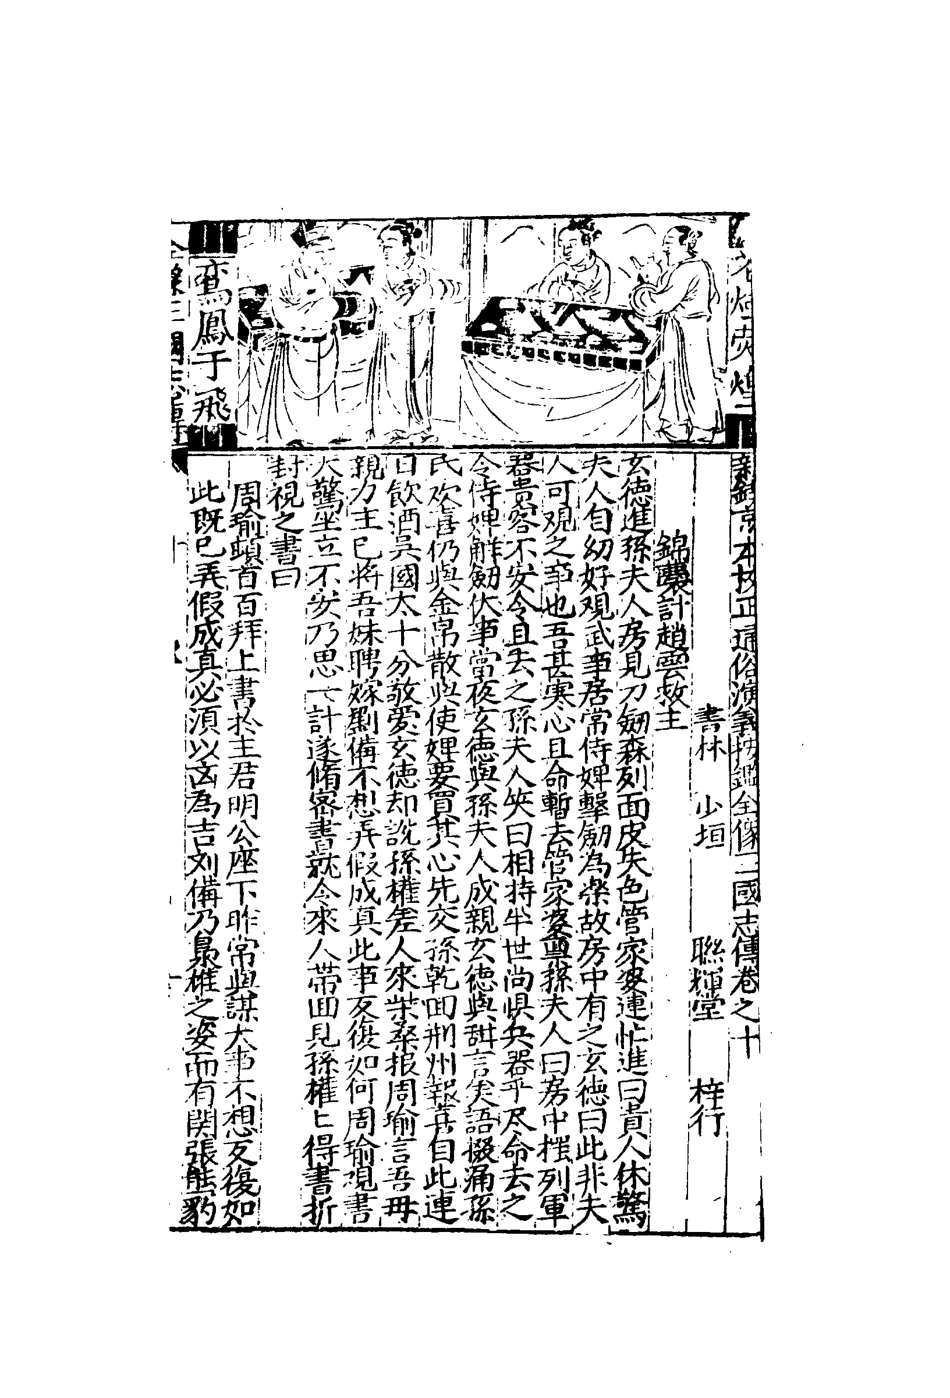 花燭熒煌
鸞鳳于飛
新鋟京本校正通俗演義按鑑全像三國志傳卷之十
書林 少垣 聯輝堂 梓行
錦囊計趙雲救主
玄德進孫夫人房見刀劒森列面皮失色管家婆連忙進曰貴人休驚
夫人自幼好观武事居常侍婢擊劒為楽故房中有之玄德曰此非夫
人可观之事也吾甚寒心且命暫去管家婆禀孫夫人曰房中摆列軍
器贵客不安令且去之孫夫人笑曰相持半世尚惧兵器乎尽命去之
令侍婢解劒伏事當夜玄德與孫夫人成親玄德與甜言美語掇涌孫
氏欢喜仍與金帛散與使婢要買其心先交孫乾回荆州報喜自此連
日飲酒吳國太十分敬爱玄德却說孫權差人來柴桑报周瑜言吾毋
親力主已將吾妹聘嫁劉備不想弄假成真此事友復如何周瑜观書
大驚坐立不安乃思一計遂脩密書就令來人带回見孫權〻得書折
封視之書曰
周瑜頓首百拜上書於主君明公座下昨常與謀大事不想友復如
此既已弄假成真必須以凶為吉刘備乃梟雄之姿而有関張熊豹